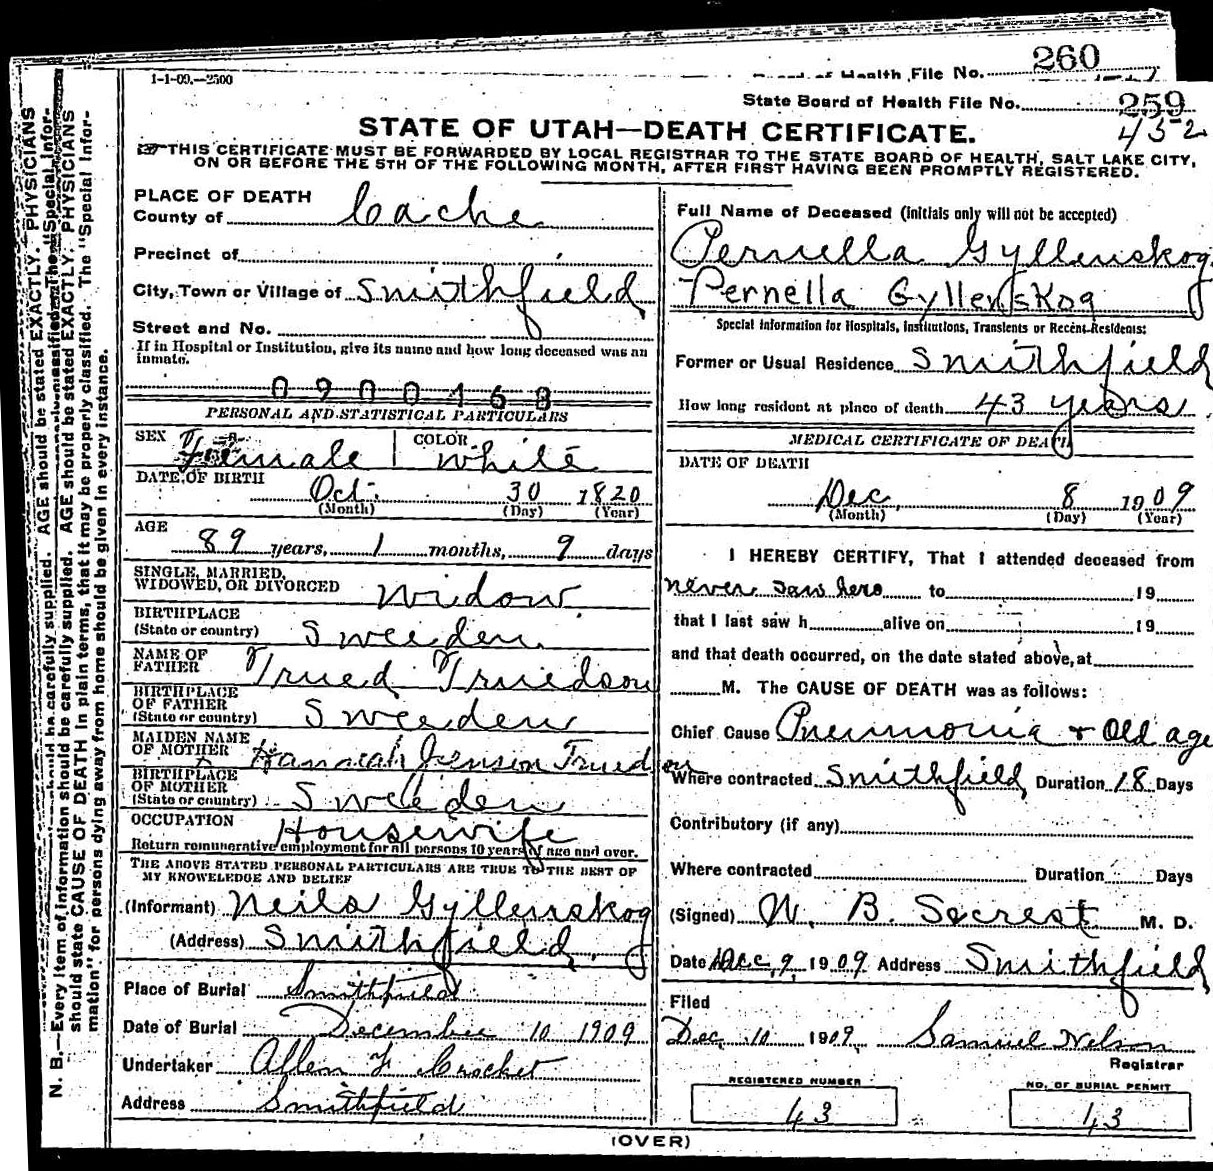 260
Health File No.
1-1-09.—2500
State Board of Health File No. 259
452
STATE OF UTAH—DEATH CERTIFICATE.
THIS CERTIFICATE MUST BE FORWARDED BY LOCAL REGISTRAR TO THE STATE BOARD OF HEALTH, SALT LAKE CITY,
ON OR BEFORE THE 5TH OF THE FOLLOWING MONTH, AFTER FIRST HAVING BEEN PROMPTLY REGISTERED.
N. B.—Every item of information should be carefully supplied. AGE should be stated EXACTLY. PHYSICIANS
should state CAUSE OF DEATH in plain terms, that it may be properly classified. The "Special Infor-
mation" for persons dying away from home should be given in every instance.
PLACE OF DEATH
County of Cache
Precinct of
City, Town or Village of Smithfield
Street and No.
If in Hospital or Institution, give its name and how long deceased was an
inmate.
0900168
PERSONAL AND STATISTICAL PARTICULARS
SEX Female COLOR White
DATE OF BIRTH Oct. 30 1820
(Month) (Day) (Year)
AGE
89 years, 1 months, 9 days
SINGLE, MARRIED,
WIDOWED, OR DIVORCED Widow
BIRTHPLACE
(State or country) Sweeden
NAME OF
FATHER Trued Truedson
BIRTHPLACE
OF FATHER
(State or country) Sweeden
MAIDEN NAME
OF MOTHER Hannah Jenson Truedson
BIRTHPLACE
OF MOTHER
(State or country) Sweeden
OCCUPATION Housewife
Return remunerative employment for all persons 10 years of age and over.
THE ABOVE STATED PERSONAL PARTICULARS ARE TRUE TO THE BEST OF
MY KNOWELEDGE AND BELIEF
(Informant) Neils Gyllenskog
(Address) Smithfield
Place of Burial Smithfield
Date of Burial December 10 1909
Undertaker Allen F Crocket
Address Smithfield
Full Name of Deceased (initials only will not be accepted)
Pernella Gyllenskog
Pernella Gyllenskog
Special Information for Hospitals, Institutions, Transients or Recent Residents:
Former or Usual Residence Smithfield
How long resident at place of death 43 years
MEDICAL CERTIFICATE OF DEATH
DATE OF DEATH
Dec. 8 1909
(Month) (Day) (Year)
I HEREBY CERTIFY, That I attended deceased from
never saw hero to 19
that I last saw h alive on 19
and that death occurred, on the date stated above, at
M. The CAUSE OF DEATH was as follows:
Chief Cause Pneumonia + Old age
Where contracted Smithfield Duration 18 Days
Contributory (if any)
Where contracted Duration Days
(Signed) W. B. Secrest M. D.
Date Dec, 9, 1909 Address Smithfield
Filed
Dec. 10 1909. Samuel Nelson
Registrar
REGISTERED NUMBER
43
NO. OF BURIAL PERMIT
43
(OVER)